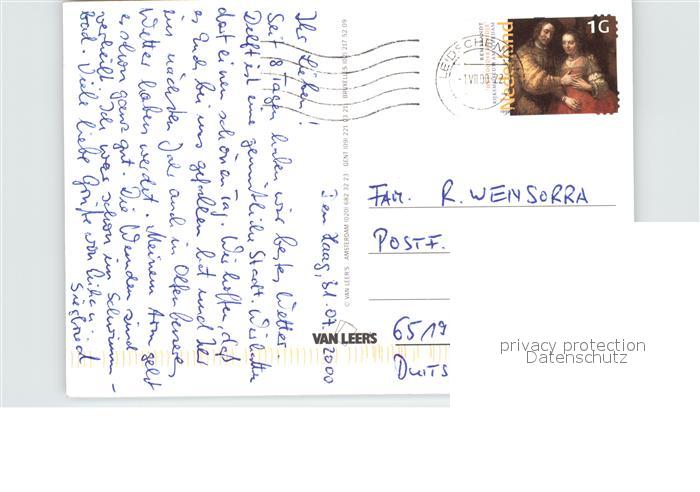 Den Haag, 31.07.2000
Ihr Lieben!
Seit 8 Tagen haben wir bestes Wetter.
Delft ist eine gemütliche Stadt. Wir hatten
dort einen schönen Tag. Wir hoffen, daß
es bei uns gefallen hat und Ihr
uns nächstes Jahr auch in
Wetter haben werdet. Meinem Arm geht
es schon ganz gut. Die Wunden sind
verheilt. Ich war schon im Schwimm-
bad. Viele liebe Grüße von
Siegfried
© VAN LEER'S AMSTERDAM (020) 682 32 23 GENT (09) 221 03 21 BRUXELLES (02) 217 52 09
VAN LEER'S
LEIDSCHEN
1G
Nederland
REMBRANDT
RIJKSMUSEUM AMSTERDAM
FAM. R. WENSORRA
POSTF.
6519
DUITS
privacy protection
Datenschutz